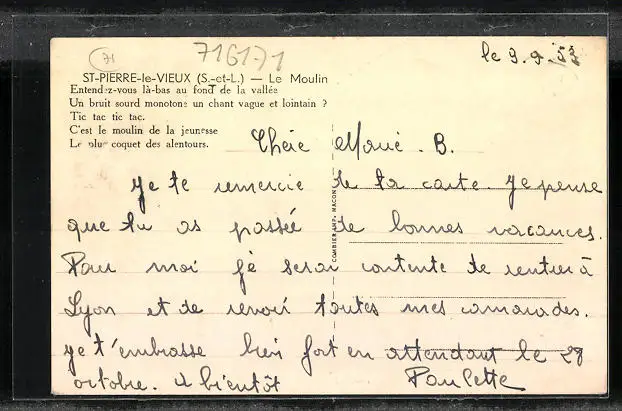 71
716171
le 9.9.53
ST-PIERRE-le-VIEUX (S.-et-L.) — Le Moulin
Entendez-vous là-bas au fond de la vallée
Un bruit sourd monotone un chant vague et lointain ?
Tic tac tic tac.
C'est le moulin de la jeunesse
Le plus coquet des alentours.
Chère Marie . B.
Je te remercie de ta carte. Je pense
que tu as passée de bonnes vacances.
Pour moi je serai contente de rentrer à
Lyon et de revoir toutes mes camarades.
je t'embrasse bien fort en attendant le 28
octobre. A bientôt Paulette
COMBIER IMP. MACON